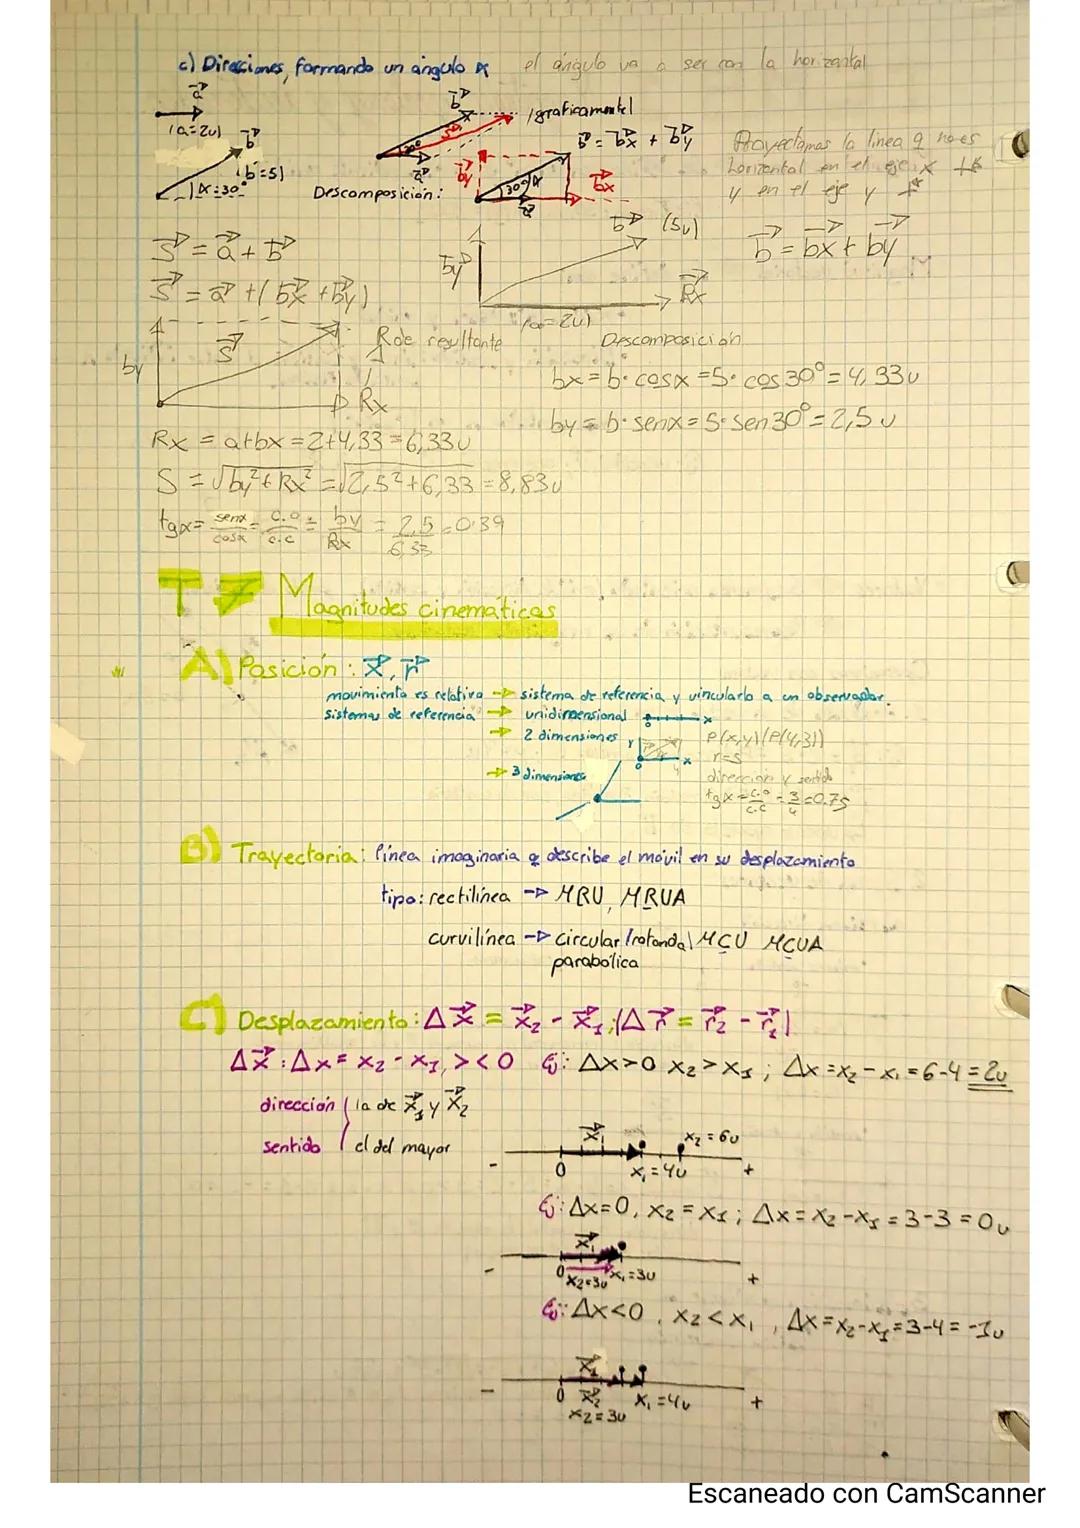 c) Direcciones, formando un ángulo α el ángulo va a ser con la horizontal
a
(a=2u)
b
(b=5)
α=30°
b
S
30°
a
(graficamente)
b = bx + by
Proyectamos la linea q no es
horizontal en el eje x
y en el eje y
Descomposición:
by
30° α
bx
a
S = a + b
S = a + (bx + by)
by
b (5u)
Rx
(a=2u)
b = bx + by
by
S
R de resultante
Rx
Descomposición
bx = b · cosα = 5 · cos 30° = 4,33u
by = b · senα = 5 · sen 30° = 2,5 u
Rx = a+bx = 2+4,33 = 6,33u
S = √by²+Rx² = √2,5²+6,33 = 8,83u
tgα = senα/cosα = c.o/c.c = by/Rx = 2,5/6,33 = 0'39
T 7 Magnitudes cinemáticas
A) Posición: x, r
movimiento es relativo → sistema de referencia y vincularlo a un observador.
sistemas de referencia → unidimensional
0 x
→ 2 dimensiones
y
0 4 x
P(x,y) (P(4,3))
r=5
dirección y sentido
tgα = c.o/c.c = 3/4 = 0.75
→ 3 dimensiones
B) Trayectoria: línea imaginaria q describe el móvil en su desplazamiento
tipo: rectilínea → MRU, MRUA
curvilínea → circular (rotonda) MCU MCUA
parabólica
C) Desplazamiento: Δx = x2 - x1; (Δr = r2 - r1)
Δx: Δx = x2 - x1, > < 0 Ej: Δx>0 x2 > x1; Δx = x2 - x1 = 6-4 = 2u
dirección la de x1 y x2
sentido el del mayor
x1
x2 = 6u
- 0 x1 = 4u +
Ej: Δx=0, x2 = x1; Δx = x2 - x1 = 3-3 = 0u
x1
- 0 x2=3u x1=3u +
Ej: Δx<0, x2 < x1, Δx = x2 - x1 = 3-4 = -1u
x1
- 0 x2 x1 = 4u +
x2 = 3u
Escaneado con CamScanner